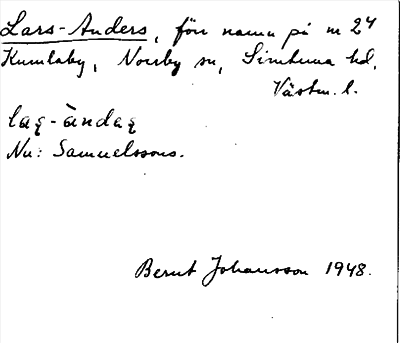 Lars-Anders, förr namn på nr 2⁴
Kumlaby, Norrby sn, Simtuna hd,
Västm. l.
laş-àndaş
Nu: Samuelssons.
Bernt Johansson 1948.